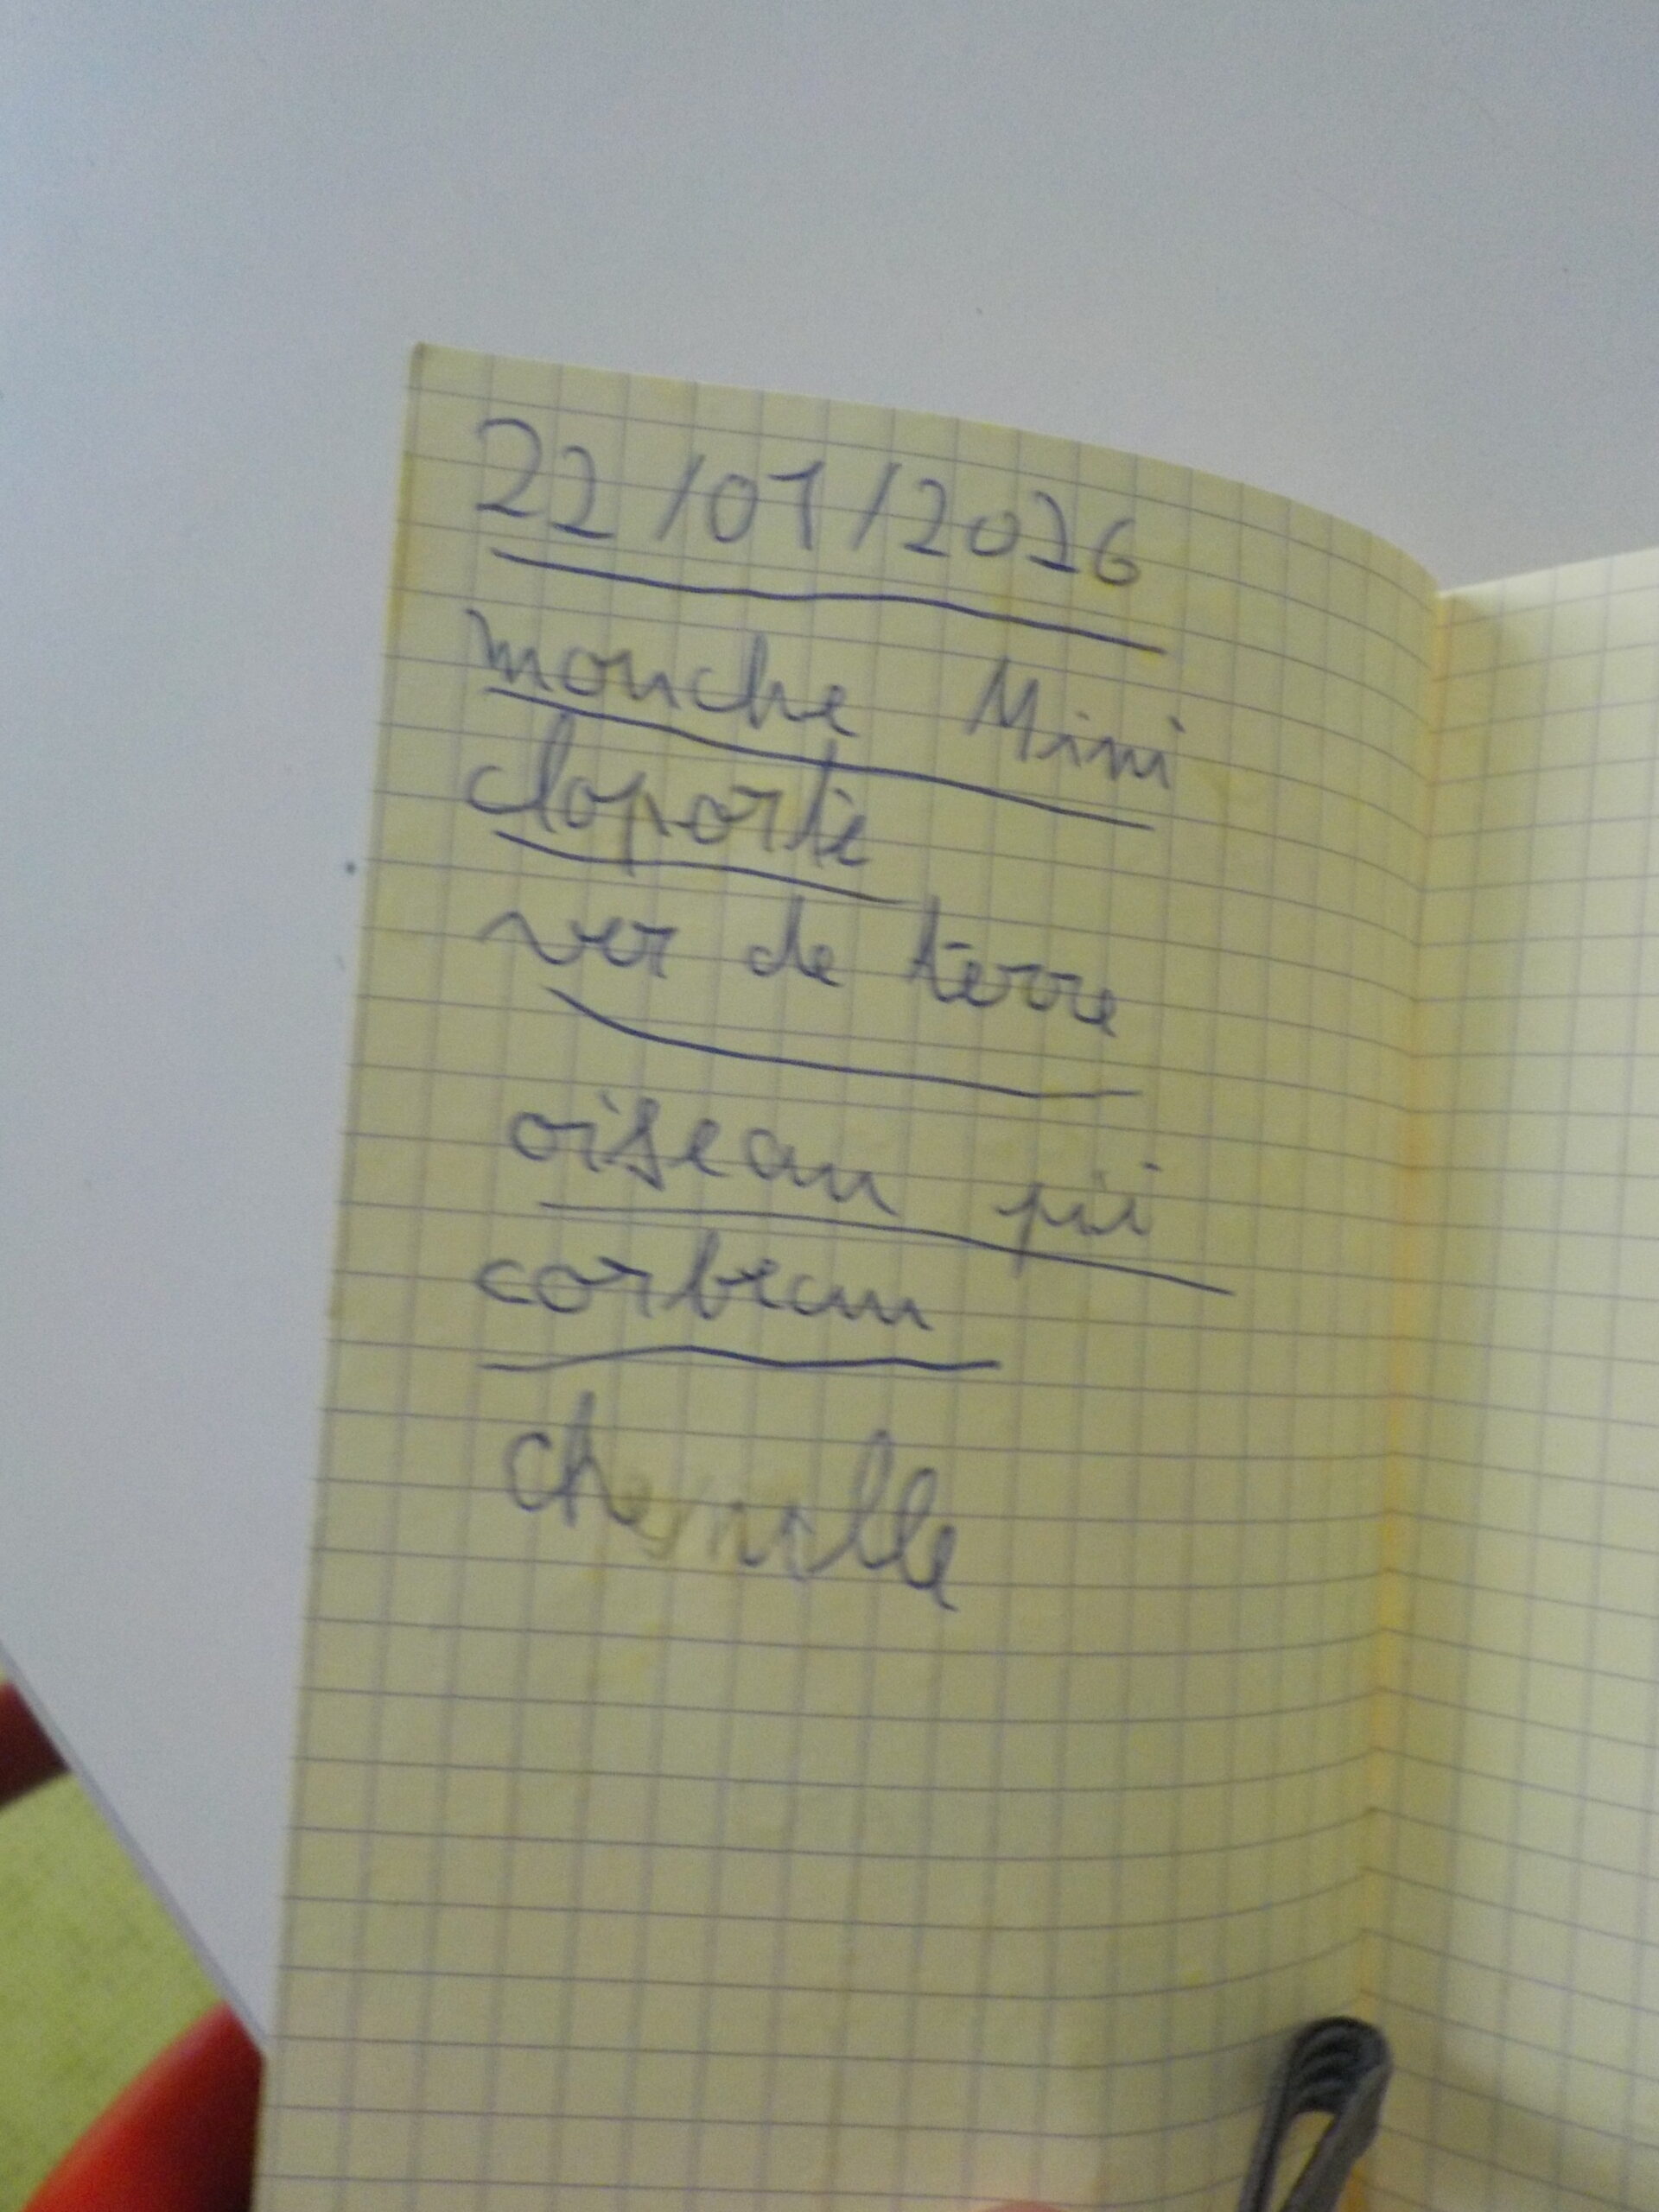 22/01/2026
mouche Mini
cloporte
ver de terre
oiseau pii
corbeau
chenille